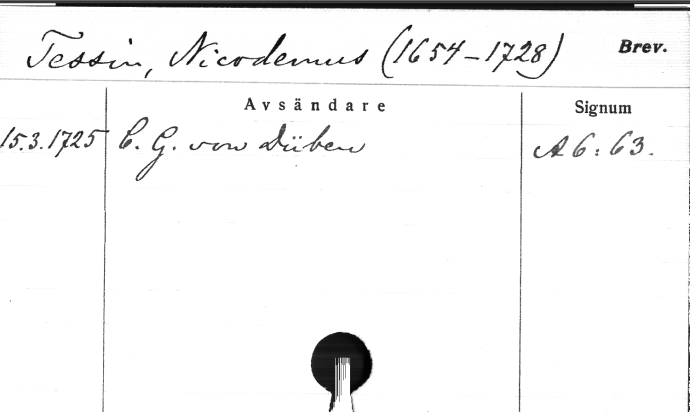 Tessin, Nicodemus (1654-1728) Brev.
Avsändare Signum
15.3.1725 C. G. von Düben A6:63.